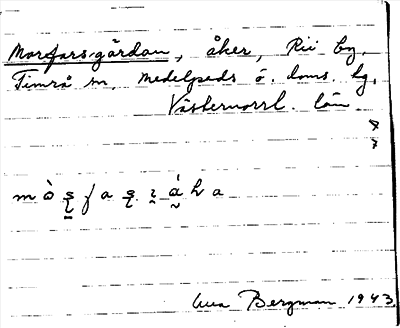 Morfarsgärdan, åker, Rii by,
Timrå sn, Medelpads ö. doms. hg,
Västernorrl. län
Bergman 1943.